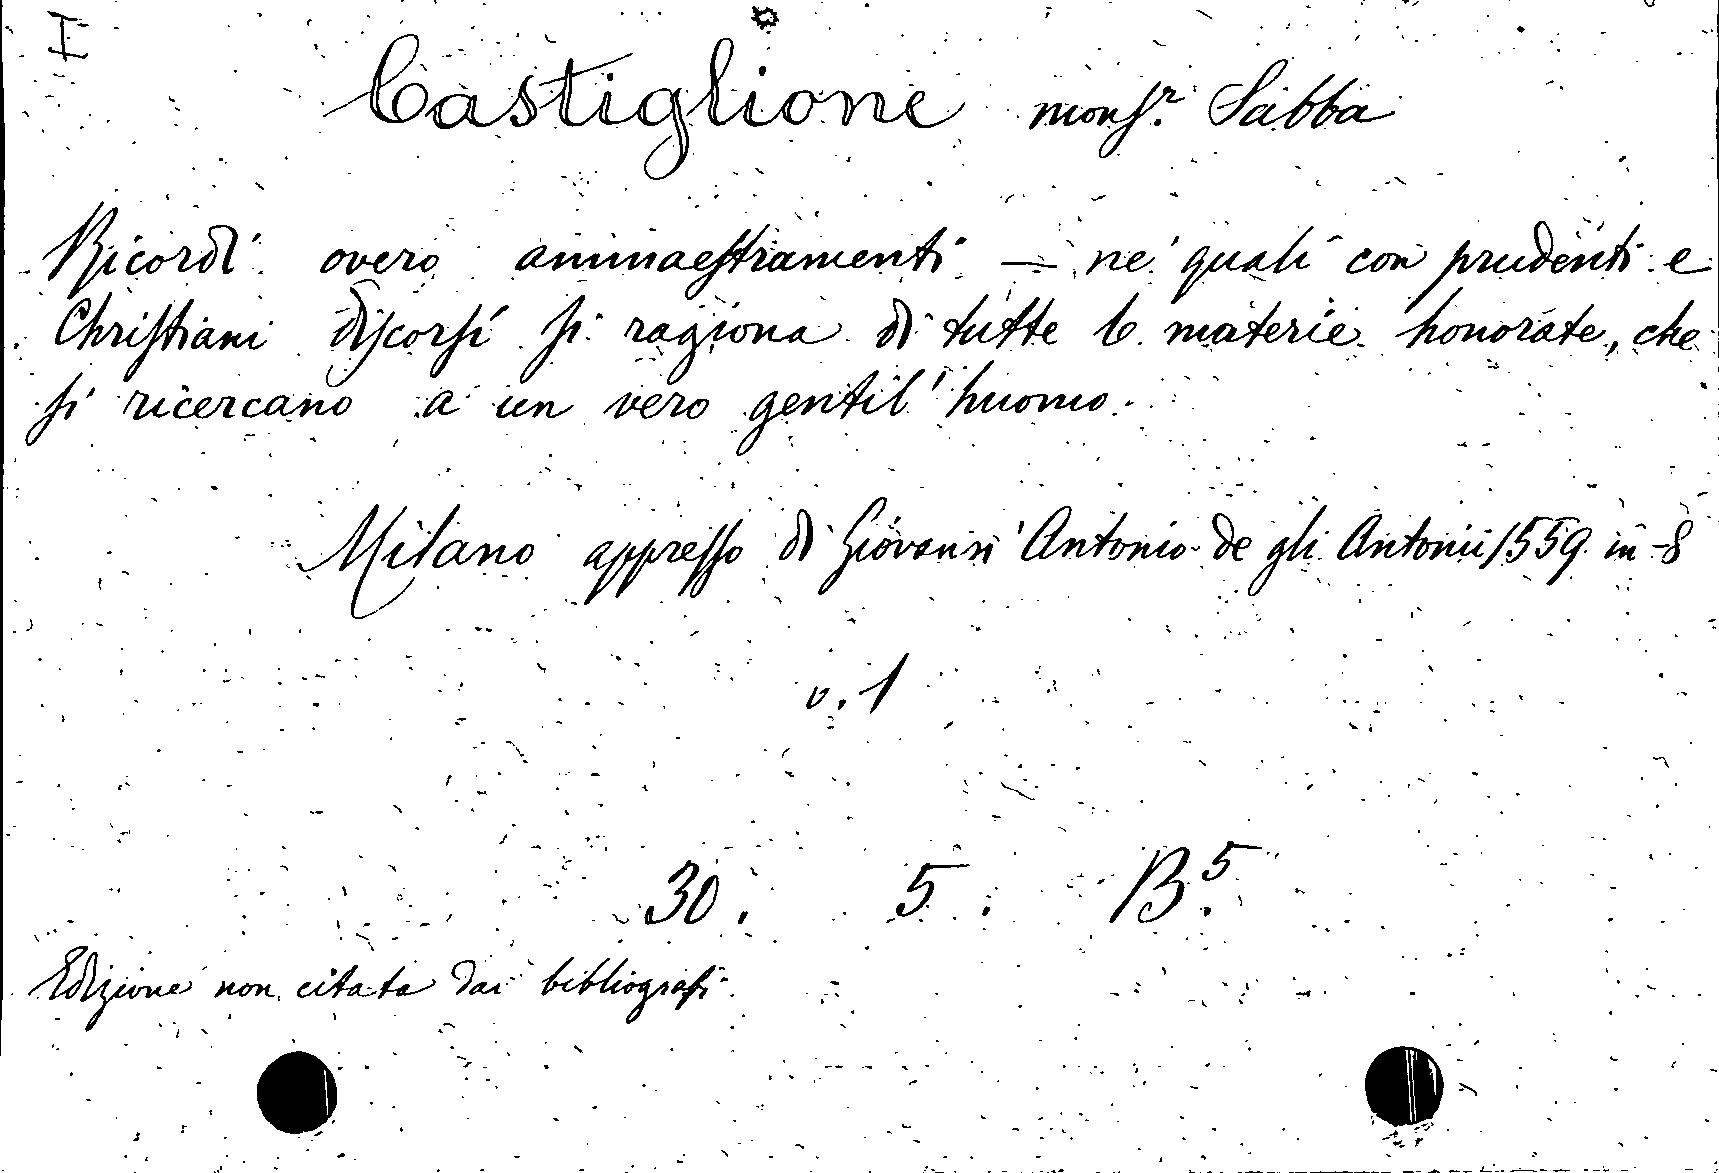 I
Castiglione monsr. Sabba
Ricordi overo ammaestramenti — ne' quali con prudenti e
Christiani discorsi si ragiona di tutte le materie honorate, che
si ricercano a un vero gentil'huomo.
Milano appresso di Giovanni Antonio de gli Antonii 1559 in-8
v. 1
30. 5. B5.
Edizione non citata dai bibliografi